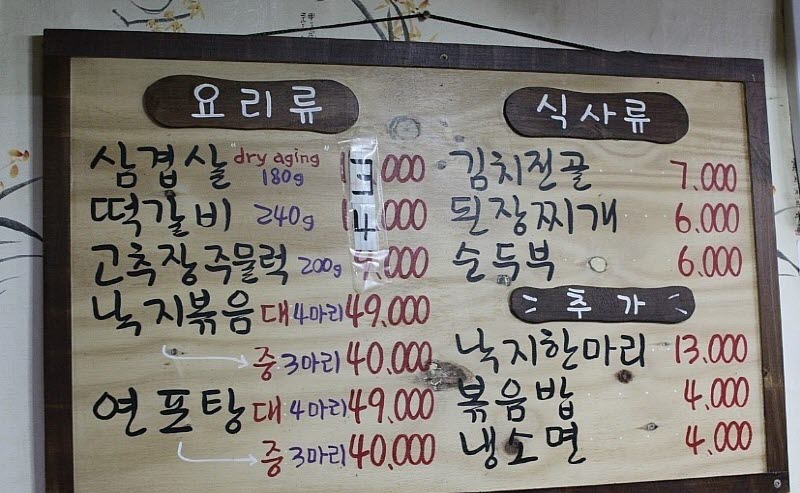 요리류
삼겹살 "dry aging" 180g 13,000
떡갈비 240g 14,000
고추장주물럭 200g ,000
낙지볶음 대 4마리 49,000
중 3마리 40,000
연포탕 대 4마리 49,000
중 3마리 40,000
식사류
김치전골 7,000
된장찌개 6,000
순두부 6,000
추가
낙지한마리 13,000
볶음밥 4,000
냉소면 4,000